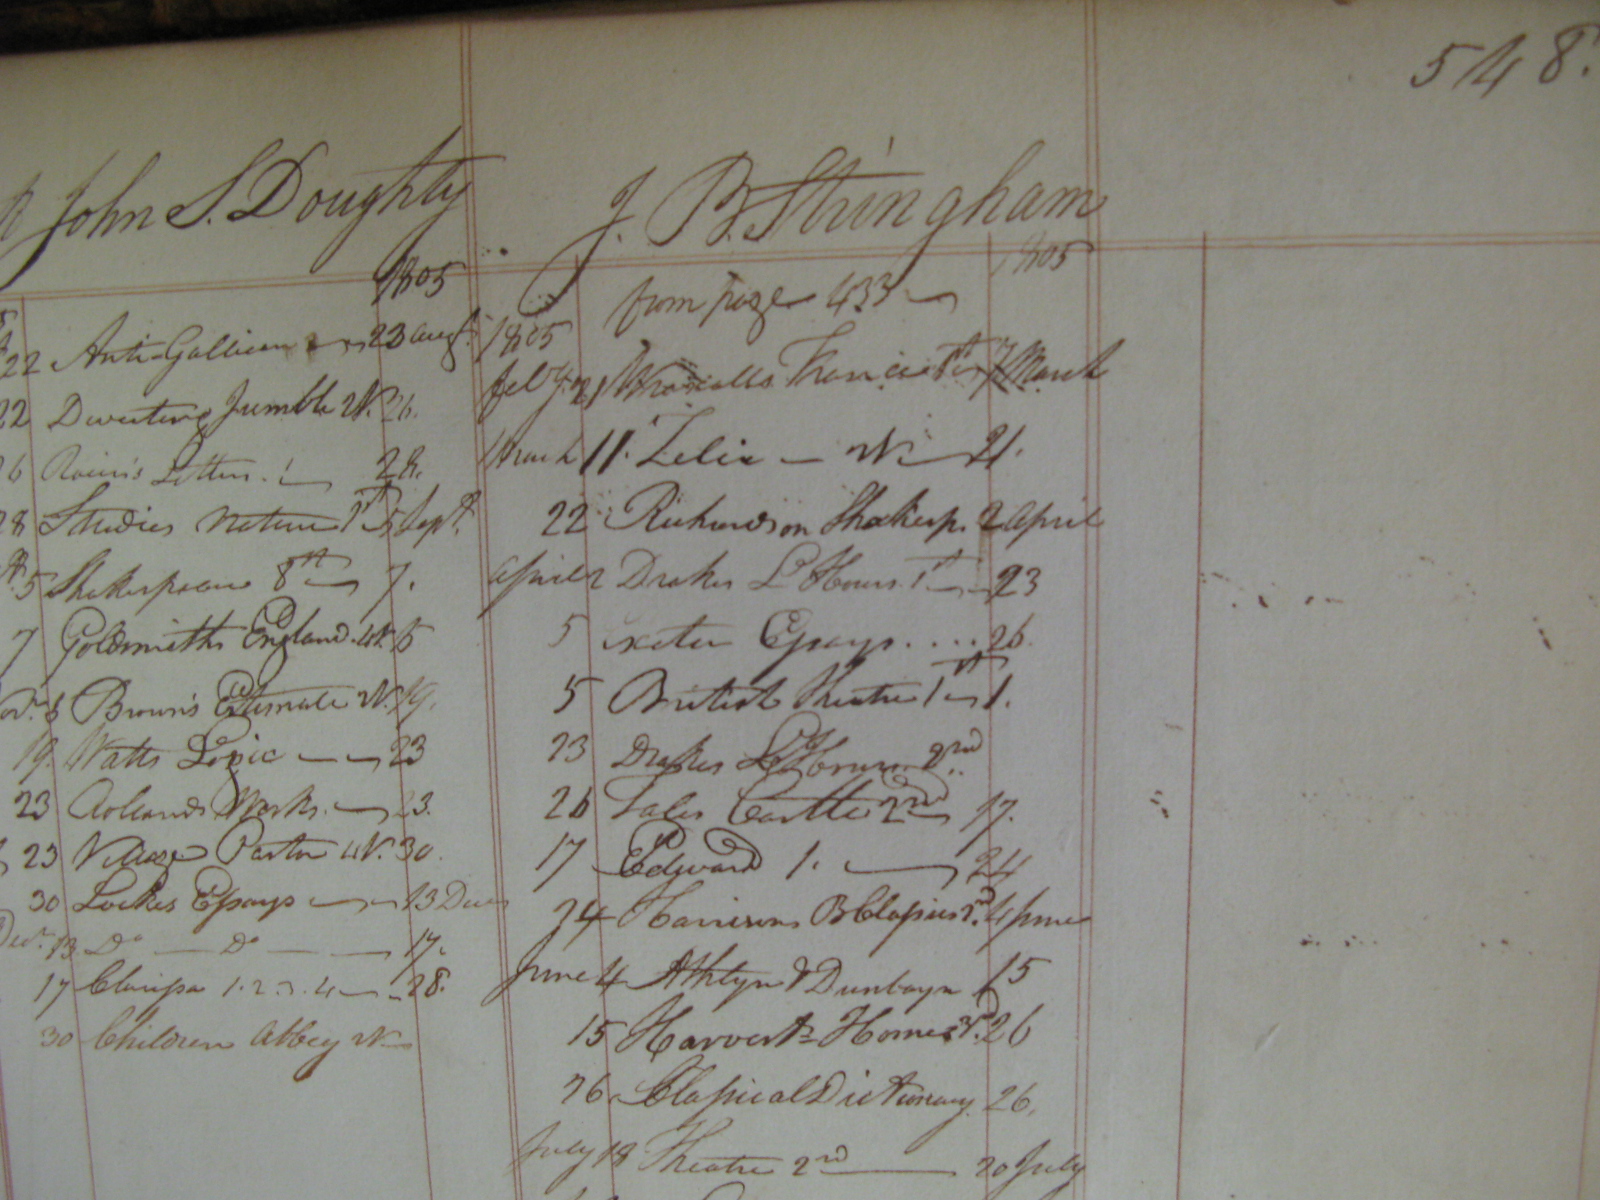 548.
John S. Doughty
1805
22 Anti-Gallican 23 Augt.
22 Diverting Jumble N. 26.
26 Letters. 28.
28 Studies Nature 1st 5 Sept.
5 Shakespeare 8th 7.
7 Goldsmiths England. 4N.
8 Browns Estimate N. 19.
19. Watts Logic 23
23 Works. 23.
23 Village Pastor 4N. 30.
30 Lockes Essays 13 Dec
Decr. 13 Do Do 17.
17 Clarissa 1.2.3.4 28.
30 Children Abbey N
J. B. Stringham
1805
from page 433
1805
Feby. 21 Wraxalls France 1st 7 March
March 11. Zelia N 21.
22 Richardson Shakesp. 2 April
April 2 Drakes L Hours 1st 23
5 Exeter Essays.... 26.
5 British Theatre 1st 1.
23 Drakes L Hours 2nd
26 Tales Castle 2nd 17.
17 Edward 1. 24
24 Harrisons B Classics 2d. 4 June
June 4 Athlyn & Dunbayn 15
15 Harvest Home 3d. 26
26 Classical Dictionary. 26.
July 18 Theatre 2nd 20 July